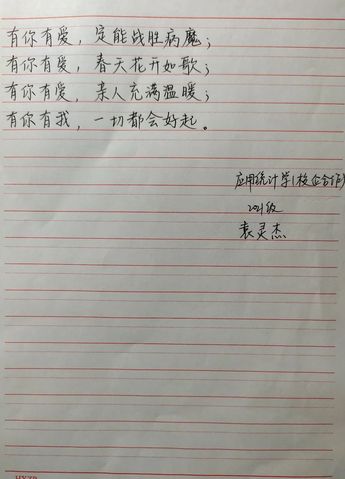 有你有爱，定能战胜病魔；
有你有爱，春天花开如歌；
有你有爱，亲人充满温暖；
有你有我，一切都会好起。
应用统计学(校企合作)
2021级
袁灵杰